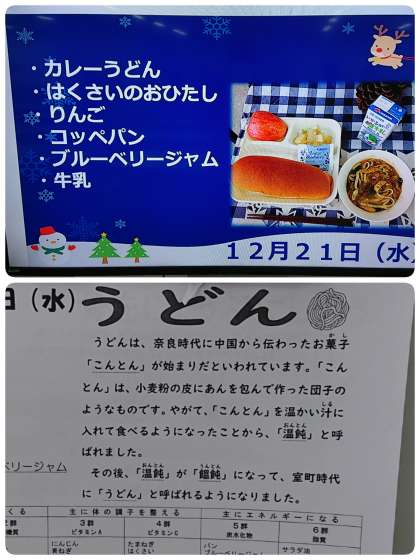 ・カレーうどん
・はくさいのおひたし
・りんご
・コッペパン
・ブルーベリージャム
・牛乳
12月21日（水
日（水）
うどん
うどんは、奈良時代に中国から伝わったお菓子
「こんとん」が始まりだといわれています。「こん
とん」は、小麦粉の皮にあんを包んで作った団子の
ようなものです。やがて、「こんとん」を温かい汁に
入れて食べるようになったことから、「温飩」と呼
ばれました。
その後、「温飩」が「饂飩」になって、室町時代
に「うどん」と呼ばれるようになりました。
ベリージャム
くる 主に体の調子を整える 主にエネルギーになる
2群 3群 4群 5群 6群
機質 ビタミンA ビタミンC 炭水化物 脂質
にんじん たまねぎ パン サラダ油
青ねぎ はくさい ブルーベリージャム